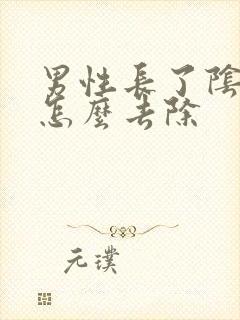 男性長了陰
怎麼去除
元璞